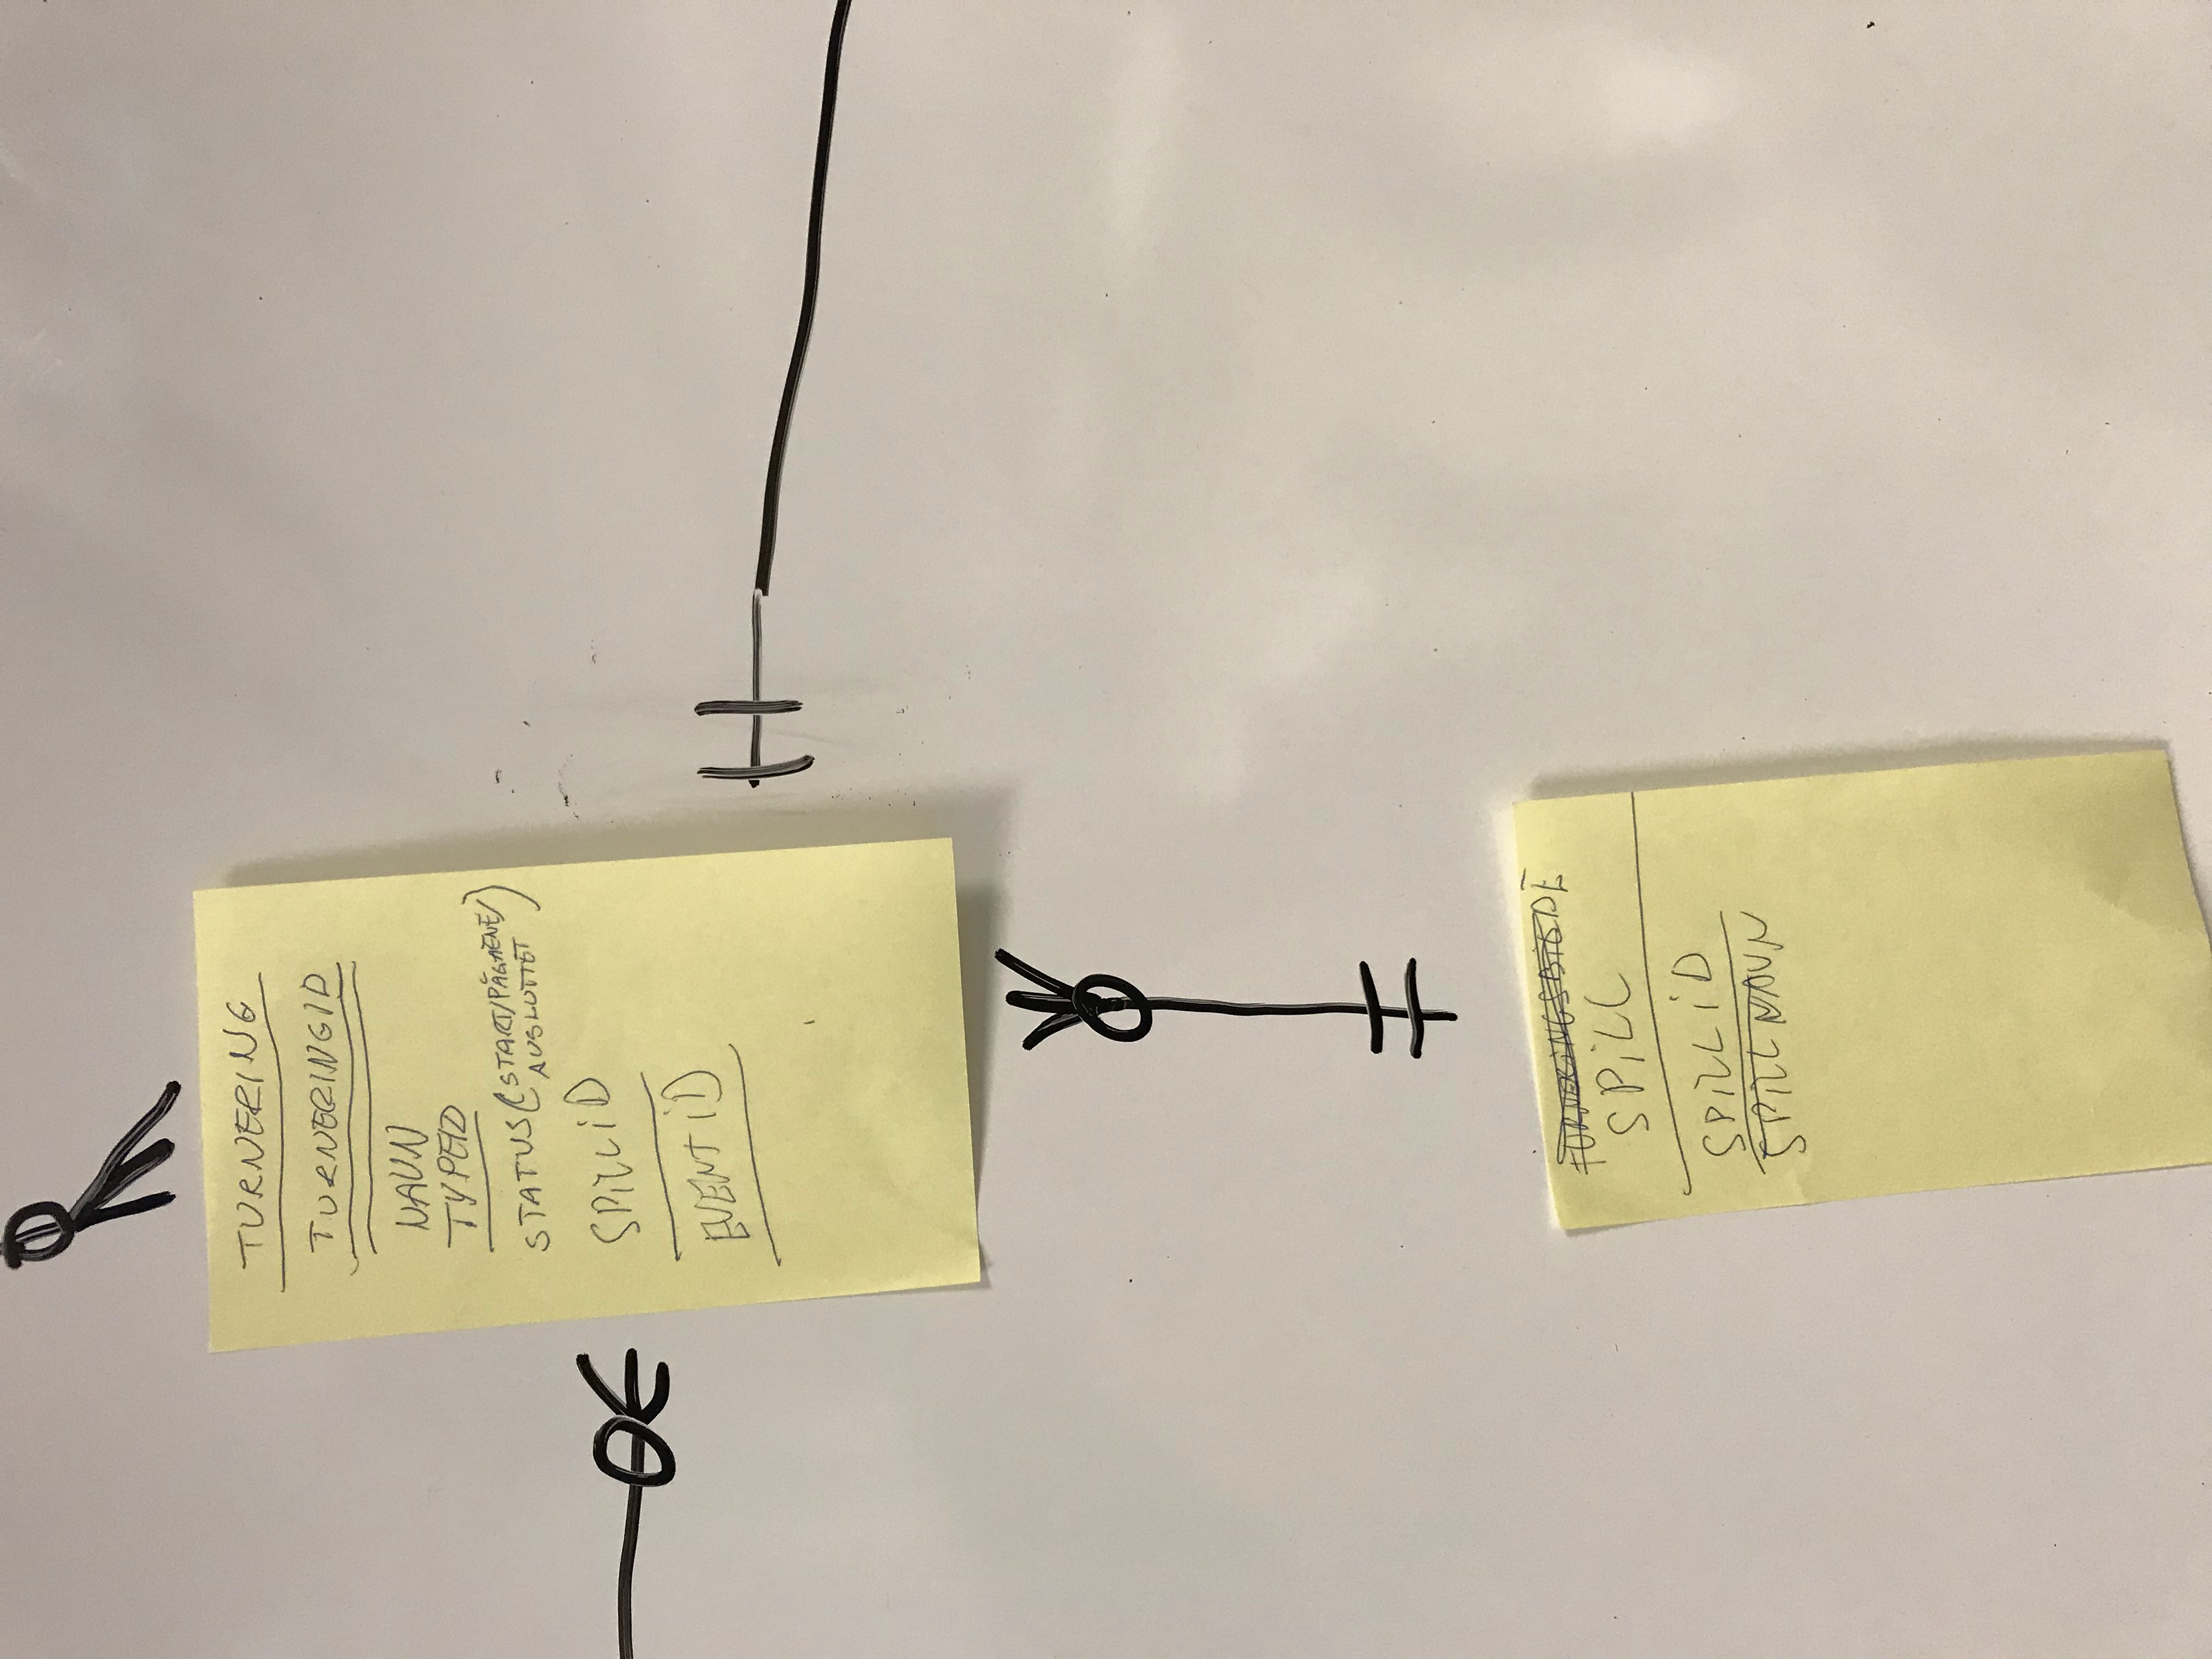 TURNERING
TURNERINGID
NAVN
TYPEID
STATUS (START/PÅGÅENE/
AVSLUTTET)
SPILLID
EVENTID
SPILL
SPILLID
SPILLNAVN